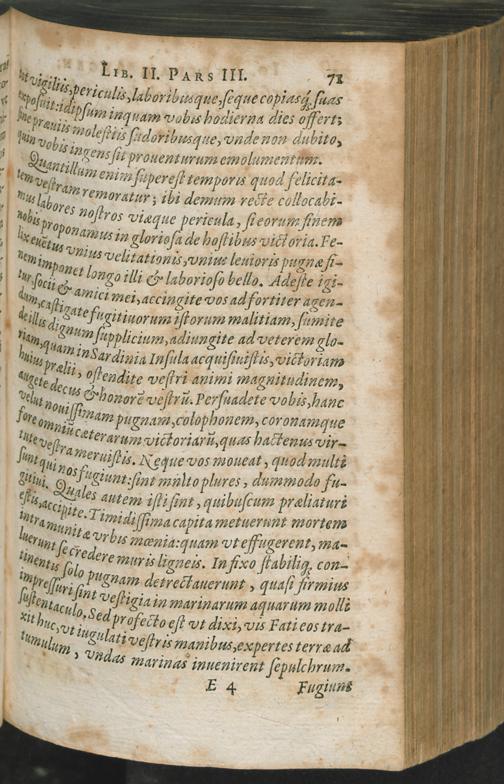 LIB. II. PARS III. 71
vigiliis, periculis, laboribusque, seque copiasq́; suas
exposuit: idipsum inquam vobis hodierna dies offert;
sine præuiis molestiis sudoribusque, vnde non dubito,
quin vobis ingens sit prouenturum emolumentum.
Quantillum enim superest temporis quod felicita-
tem vestram remoratur; ibi demum recte collocabi-
mus labores nostros viæque pericula, si eorum finem
nobis proponamus in gloriosa de hostibus victoria. Fe-
lix euẽtus vnius velitationis, vnius leuioris pugnæ fi-
nem imponet longo illi & laborioso bello. Adeste igi-
tur, socii & amici mei, accingite vos ad fortiter agen-
dum, castigate fugitiuorum istorum malitiam, sumite
de illis dignum supplicium, adiungite ad veterem glo-
riam, quam in Sardinia Insula acquisiuistis, victoriam
huius prælii, ostendite vestri animi magnitudinem,
augete decus & honorẽ vestrũ. Persuadete vobis, hanc
velut nouissimam pugnam, colophonem, coronamque
fore omniũ cæterarum victoriarũ, quas hactenus vir-
tute vestra meruistis. Neque vos moueat, quod multi
sunt qui nos fugiunt: sint multo plures, dummodo fu-
giui. Quales autem isti sint, quibuscum præliaturi
estis, accipite. Timidissima capita metuerunt mortem
intra munita vrbis mœnia: quam vt effugerent, ma-
luerunt se credere muris ligneis. In fixo stabiliq́; con-
tinentis solo pugnam detrectauerunt, quasi firmius
impressuri sint vestigia in marinarum aquarum molli
sustentaculo, Sed profecto est vt dixi, vis Fati eos tra-
xit huc, vt iugulati vestris manibus, expertes terræ ad
tumulum, vndas marinas inuenirent sepulchrum.
E 4 Fugiunt